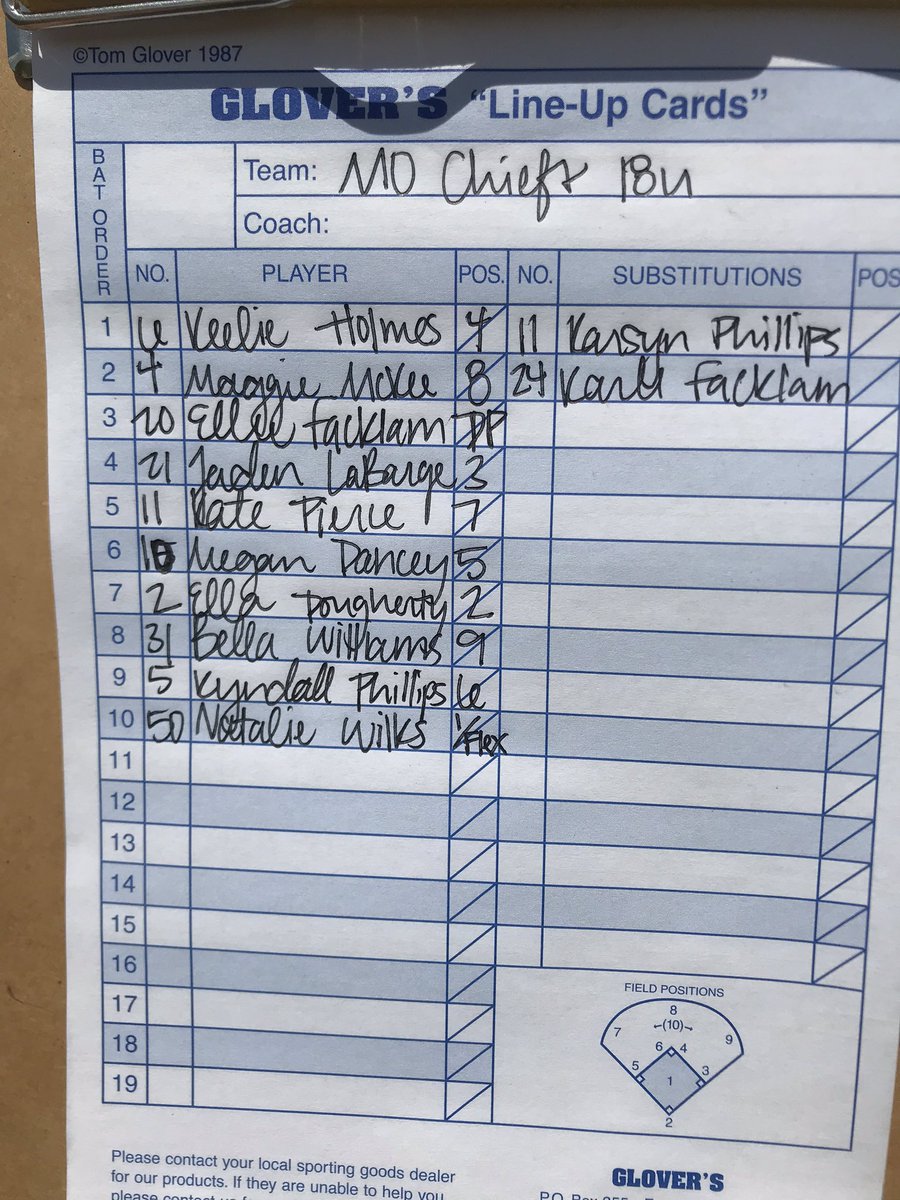 ©Tom Glover 1987
GLOVER'S "Line-Up Cards"
BAT ORDER
Team: MO Chiefs 18u
Coach:
NO. PLAYER POS. NO. SUBSTITUTIONS POS
1 6 Keelie Holmes 4 11 Karsyn Phillips
2 4 Maggie McKee 8 24 Karli Facklam
3 20 Ellee Facklam DP
4 21 Jaden LaBarge 3
5 11 Kate Pierce 7
6 10 Megan Dancey 5
7 2 Ella Dougherty 2
8 31 Bella Williams 9
9 5 Kyndall Phillips 6
10 50 Natalie Wilks 1/Flex
11
12
13
14
15
16
17
18
19
FIELD POSITIONS
8
7 (10) 9
6 4
5 1 3
2
Please contact your local sporting goods dealer
for our products. If they are unable to help you
GLOVER'S